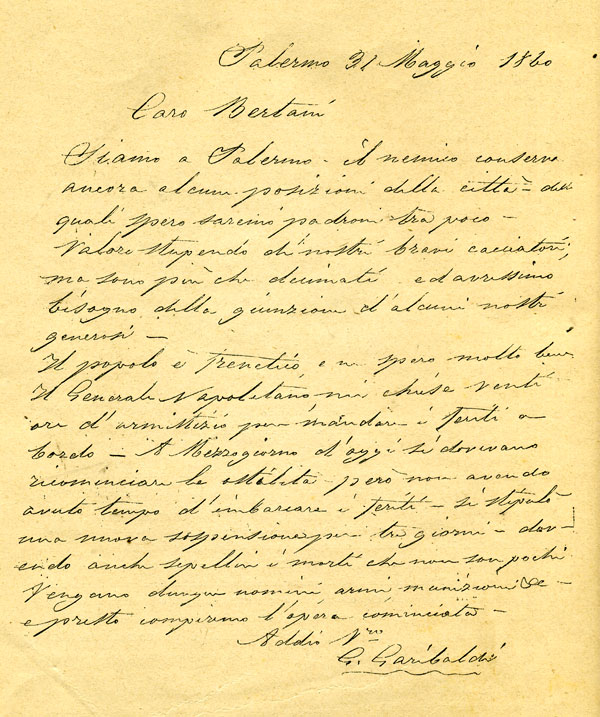 Palermo 31 Maggio 1860
Caro Bertani
Siamo a Palermo - il nemico conserva
ancora alcune posizioni della città - delle
quali spero saremo padroni tra poco -
Valore stupendo di nostri bravi cacciatori,
ma sono più che decimati ed avressimo
bisogno della giunzione d'alcuni nostri
generosi -
Il popolo è frenetico, e ne spero molto bene
Il Generale Napoletano mi chiese venti
ore d'armistizio per mandare i feriti a
bordo - A Mezzogiorno d'oggi si dovevano
ricominciare le ostilità però non avendo
avuto tempo d'imbarcare i feriti - si stipulò
una nuova sospensione per tre giorni - dov-
endo anche sepellire i morti che non son pochi
Vengano dunque uomini armi munizioni &c -
e presto compiremo l'opera cominciata -
Addio Vro
G. Garibaldi